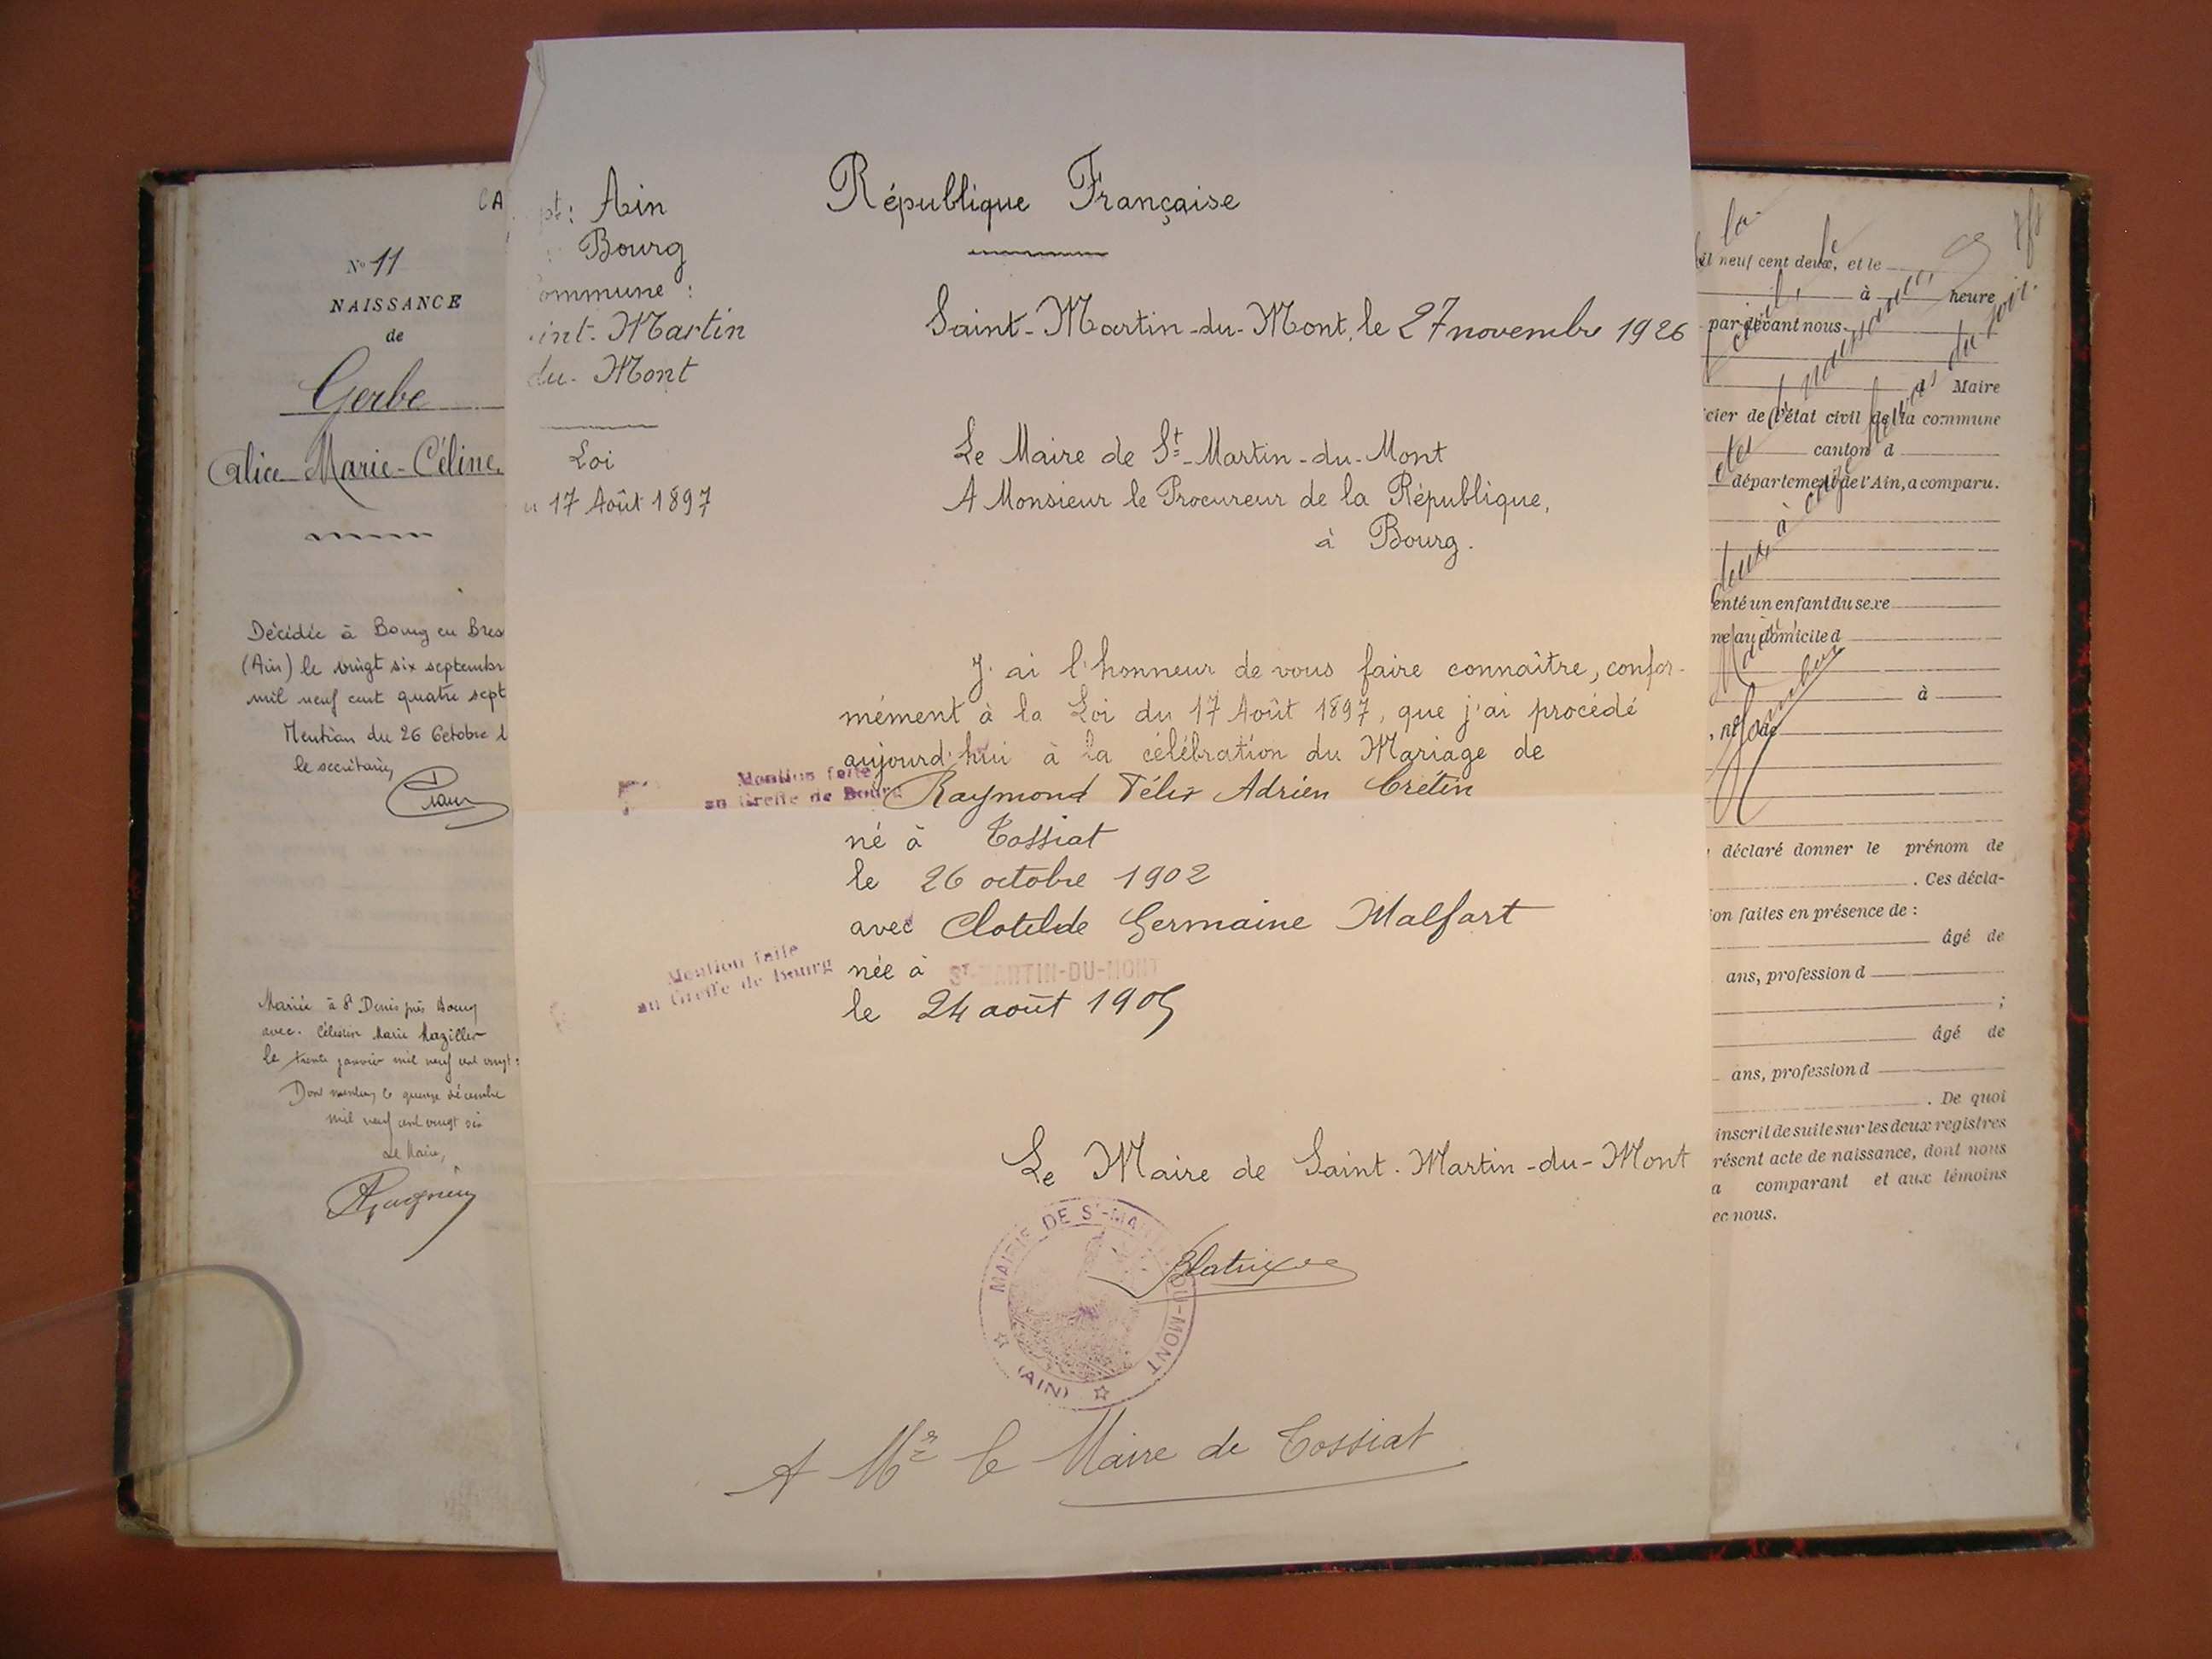 CA
N° 11
NAISSANCE
de
Gerbe
Alice Marie-Céline
Décédée à Bourg en Bres
(Ain) le vingt six septembr
mil neuf cent quatre sept
Mention du 26 Octobre 1
le secrétaire
Mariée à St Denis près Bourg
avec Célestin Marie Mazillier
le trente janvier mil neuf cent vingt
Dont mention le quinze décembre
mil neuf cent vingt six
Le Maire,
pt: Ain
Bourg
ommune :
int-Martin
du-Mont
Loi
u 17 Août 1897
République Française
Saint-Martin-du-Mont, le 27 novembre 1926
Le Maire de St-Martin-du-Mont
A Monsieur le Procureur de la République,
à Bourg.
J'ai l'honneur de vous faire connaître, confor-
mément à la Loi du 17 Août 1897, que j'ai procédé
aujourd'hui à la célébration du Mariage de
Mention faite
au Greffe de Bourg
Raymond Félix Adrien Crétin
né à Tossiat
le 26 octobre 1902
avec Clotilde Germaine Malfart
Mention faite
au Greffe de Bourg
née à ST-MARTIN-DU-MONT
le 24 août 1905
Le Maire de Saint-Martin-du-Mont
MAIRIE DE ST-MARTIN-DU-MONT
(AIN)
A Mr le Maire de Tossiat
il neuf cent deux, et le
à heure
par-devant nous
Maire
cier de l'état civil de la commune
canton d
département de l'Ain, a comparu.
enté un enfant du sexe
né au domicile d
à
déclaré donner le prénom de
. Ces décla-
ion faites en présence de :
âgé de
ans, profession d
;
âgé de
ans, profession d
. De quoi
inscrit de suite sur les deux registres
résent acte de naissance, dont nous
a comparant et aux témoins
ec nous.